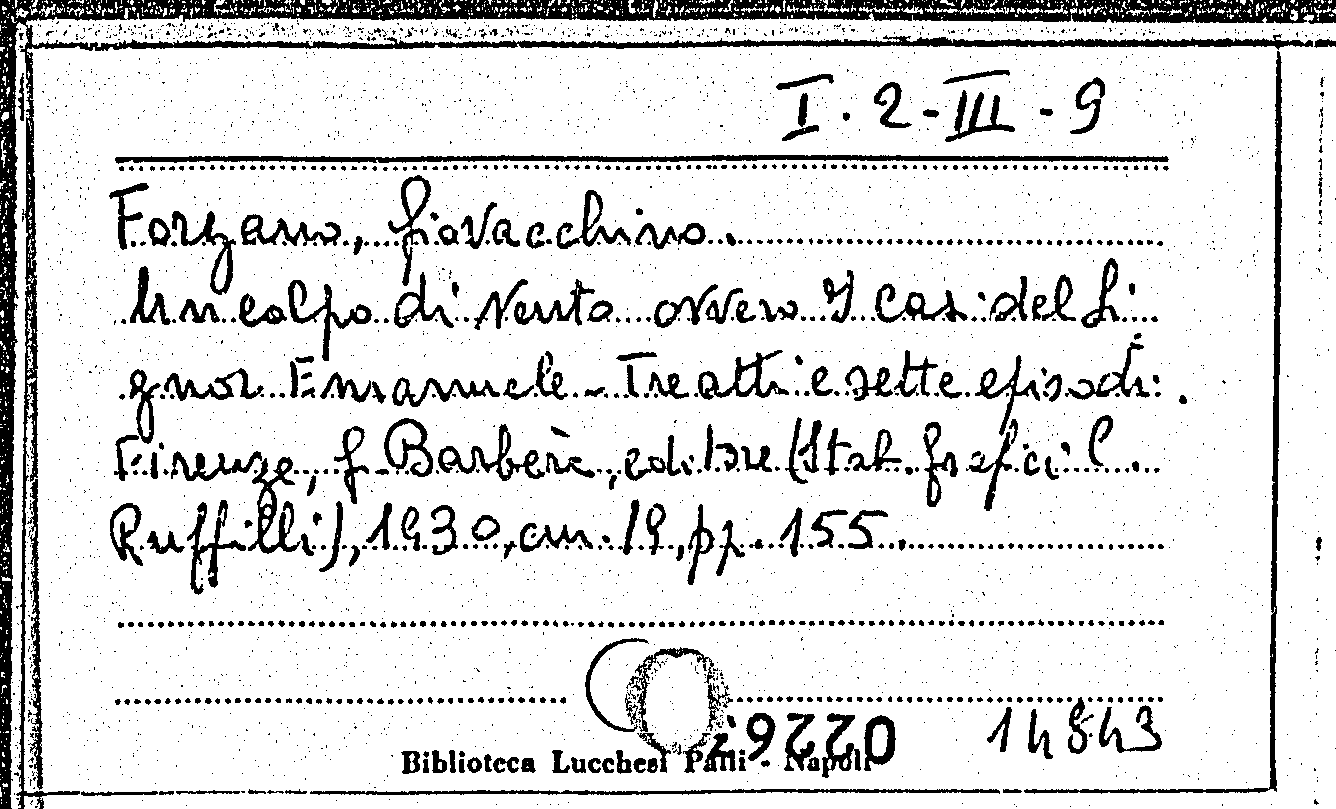 I. 2-III-9
Forzano, Giovacchino.
Un colpo di vento ovvero I casi del Si
gnor Emanuele - Tre atti e sette episodi.
Firenze, G. Barbèra, editore (Stab. Grafici C.
Ruffilli), 1930, cm. 19, pp. 155.
14843
Biblioteca Lucchesi Palli - Napoli